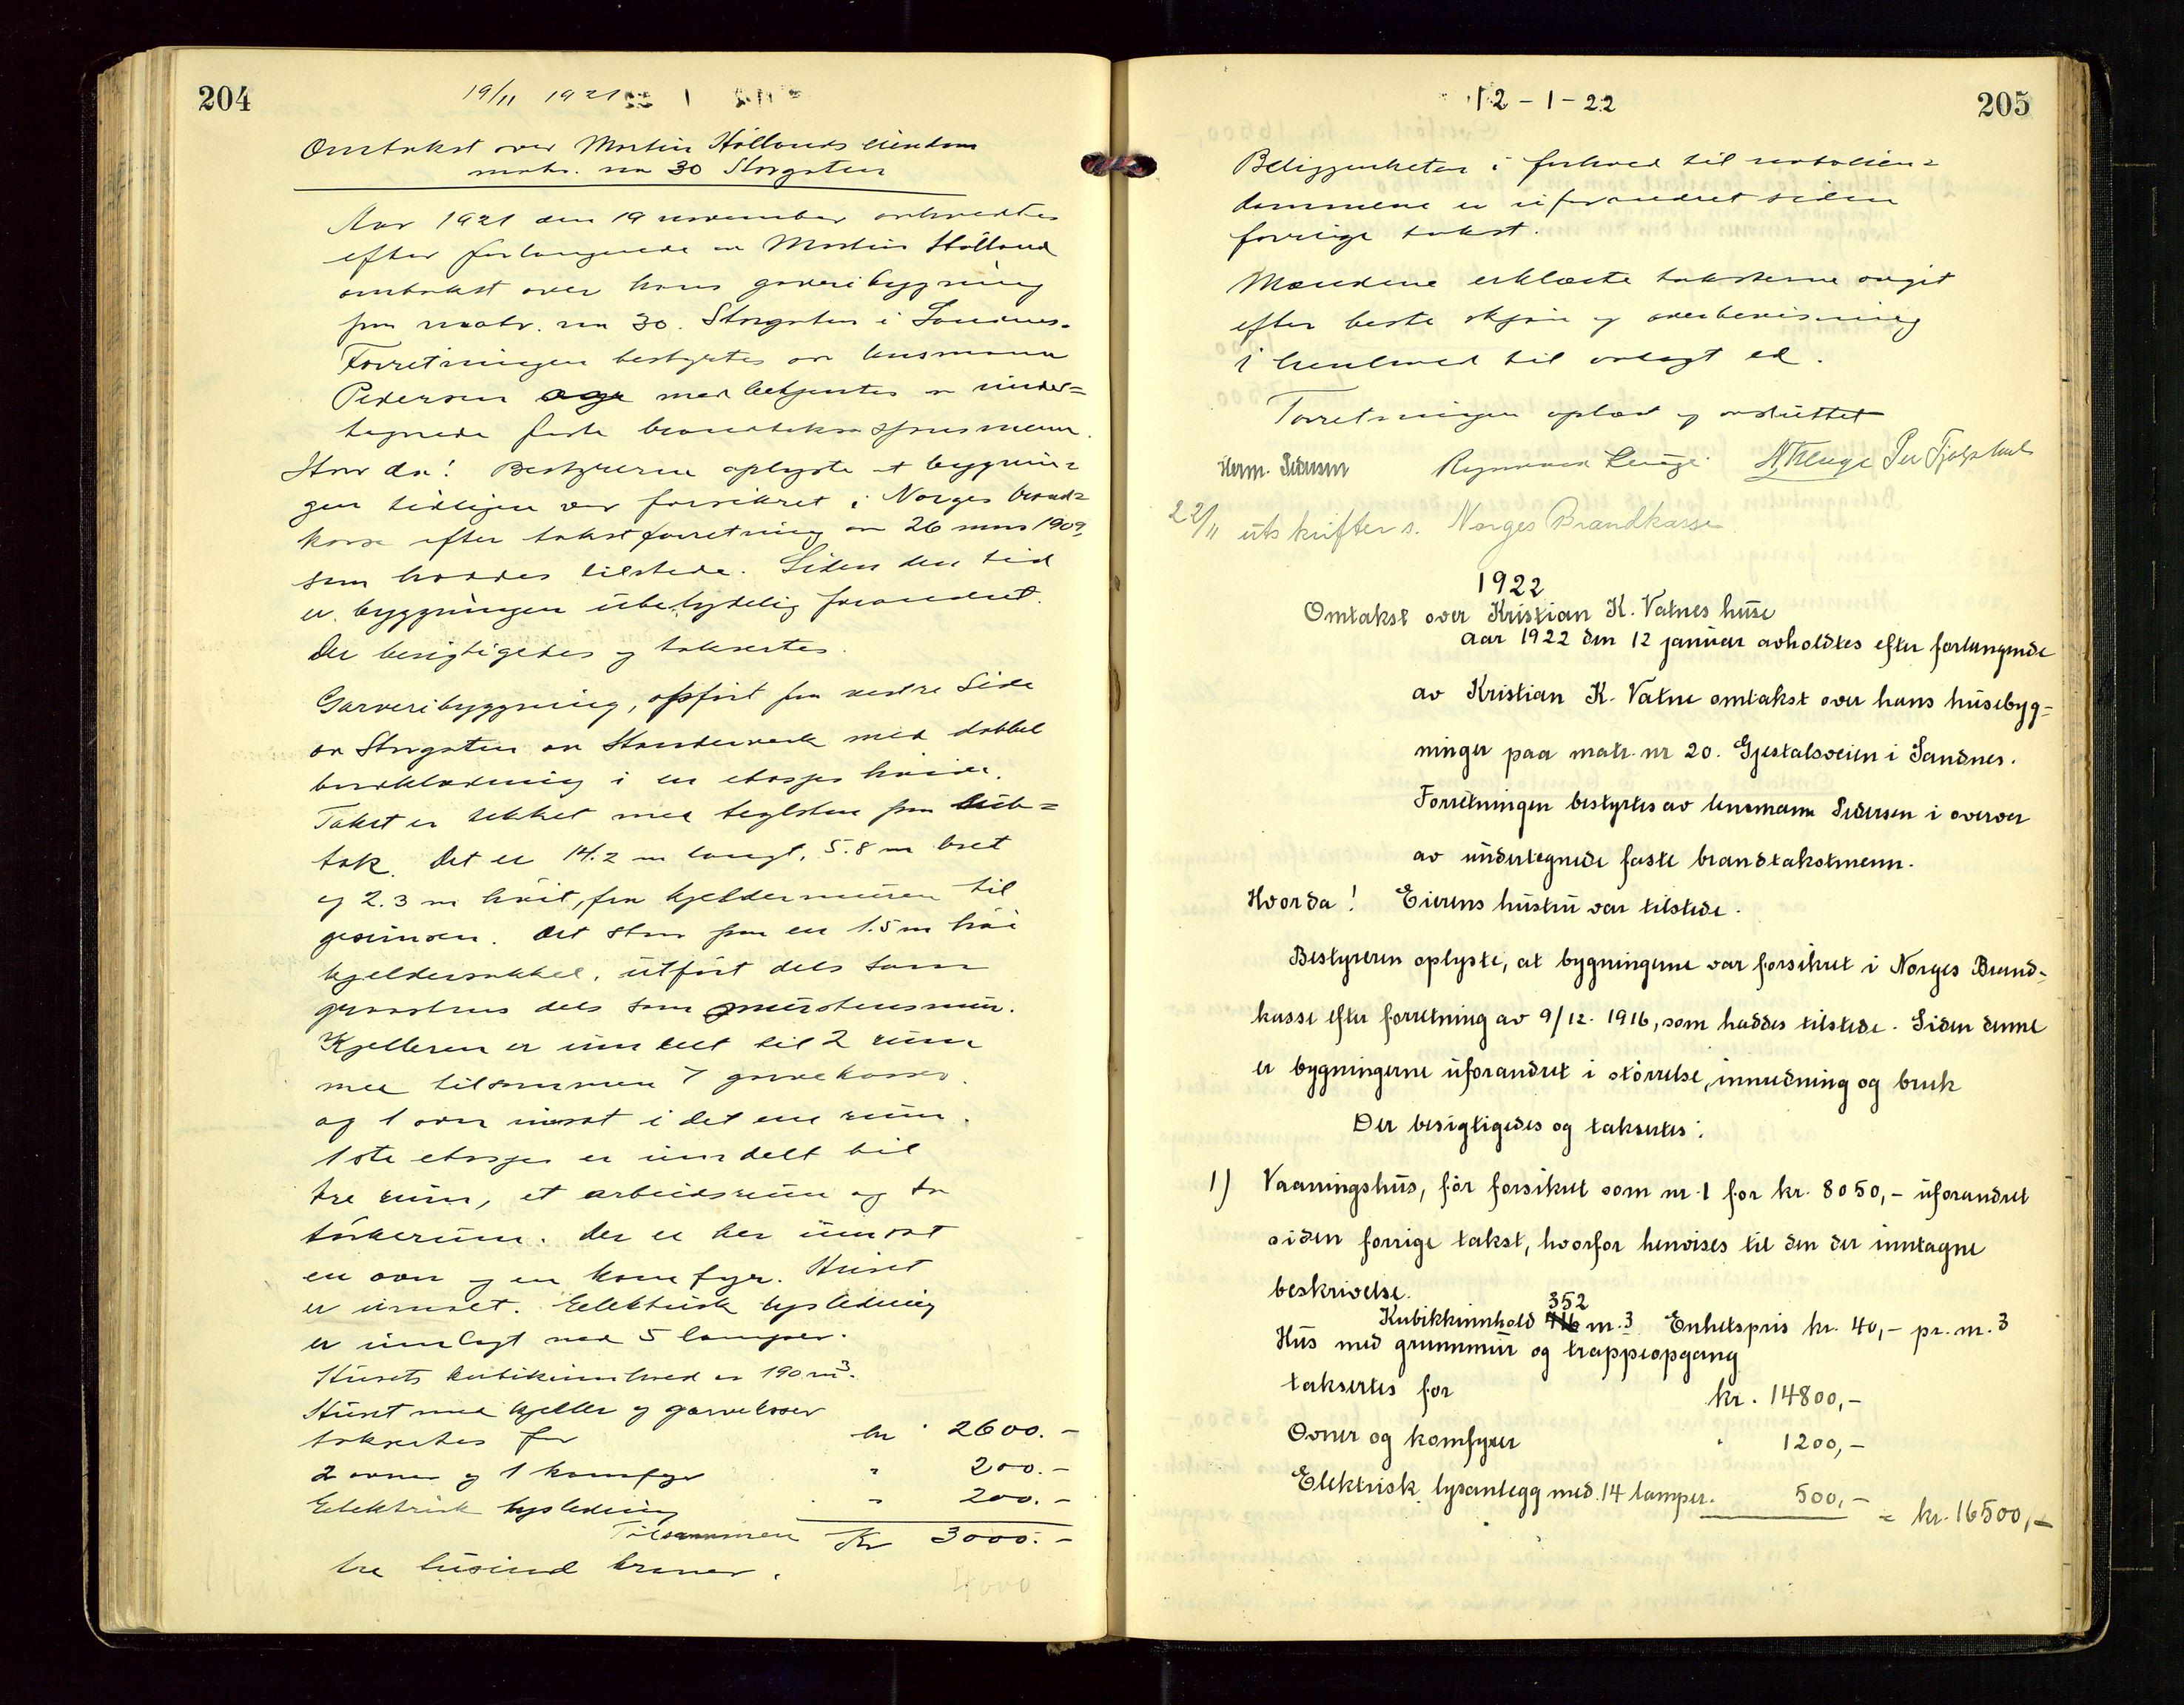 204
19/11 1921
Omtakst over Martin Hollands eiendom
matr. nr 30 Storgaten
Aar 1921 den 19 november avholdtes
efter forlangende av Martin Holland
omtakst over hans garveribygning
paa matr. nr 30. Storgaten i Sandnes.
Forretningen bestyrtes av lensmann
Pedersen med betjentes av under=
tegnede faste brandtakstmenn.
Hvor da! Bestyreren oplyste at bygnin=
gen tidligere var forsikret i Norges brand=
kasse efter takstforretning av 26 mars 1909,
som haddes tilstede. Siden den tid
er byggningen ubetydelig forandret.
Der besigtigedes og taksertes.
Garveribyggning, opført paa vestre Side
av Storgaten av Standerverk med dobbel
bordklædning i en etasjes høide.
Taket er tekket med teglsten paa sub=
tak. Det er 14.2 m langt, 5.8 m bret
og 2.3 m høit, fra kjeldermuren til
gesimsen. Det staar paa en 1.5 m høi
kjeldersokkel, utført dels som
graastens dels som murstensmur.
Kjelleren er inndelt til 2 rum
med tilsammen 7 garvekasser
og 1 ovn innsat i det ene rum.
1ste etasjes er inndelt til
tre rum, et arbeidsrum og to
tørkerum. Der er her innsat
en ovn og en komfyr. Huset
er umalt. Eelektrisk lysledning
er innlagt med 5 lamper.
Husets kubikinnhold er 190 m3.
Huset med kjeller og garvekasser
taksertes for kr 2600.-
2 ovner og 1 komfyr " 200.-
Eelektrisk lysledning " 200.-
Tilsammen Kr 3000.-
tre tusind kroner.
4000
12-1-22
205
Beliggenheten i forhold til naboeien=
dommene er uforandret siden
forrige takst.
Mændene erklærte taksterne avgit
efter beste skjøn og overbevisning
i henhold til avlagt ed.
Forretningen oplæst og avsluttet
Herm. Pedersen Rasmus Lenge
22/11 utskrifter s. Norges Brandkasse
1922
Omtakst over Kristian K. Vatnes huse
Aar 1922 den 12 januar avholdtes efter forlangende
av Kristian K. Vatne omtakst over hans husebyg=
ninger paa matr. nr 20. Gjestalsveien i Sandnes.
Forretningen bestyrtes av lensmann Pedersen i overvær
av undertegnede faste brandtakstmenn.
Hvorda! Eierens hustru var tilstede.
Bestyreren oplyste, at bygningerne var forsikret i Norges Brand-
kasse efter forretning av 9/12. 1916, som haddes tilstede. Siden denne
er bygningerne uforandret i størrelse, innredning og bruk
Der besigtigedes og taksertes:
1) Vaaningshus, før forsikret som nr. 1 for kr. 8050,- uforandret
siden forrige takst, hvorfor henvises til den der inntagne
beskrivelse.
352
Kubikkinnhold 416 m.3 Enhetspris kr. 40,- pr. m.3
Hus med grunnmur og trappeopgang
taksertes for kr. 14800,-
Ovner og komfyrer " 1200,-
Elektrisk lysanlegg med 14 lamper. 500,- = kr. 16500,-